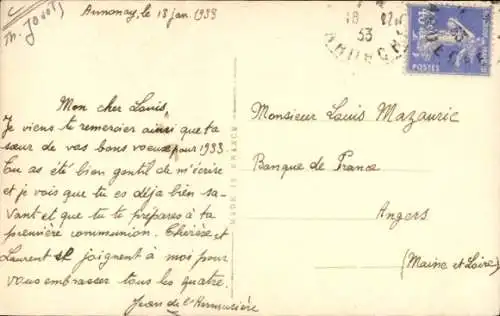 Annonay, le 18 jan. 1933
Mon cher Louis,
Je viens te remercier ainsi que ta
sœur de vos bons voeux pour 1933.
Tu as été bien gentil de m'écrire
et je vois que tu es déja bien sa-
vant et que tu te prépares à ta
première communion. Thérèse et
Laurent se joignent à moi pour
vous embrasser tous les quatre.
Jean de l'Hermuzière
MADE IN FRANCE
18
33
ARDECHE
POSTES
Monsieur Louis Mazauric
Banque de France
Angers
(Maine et Loire)